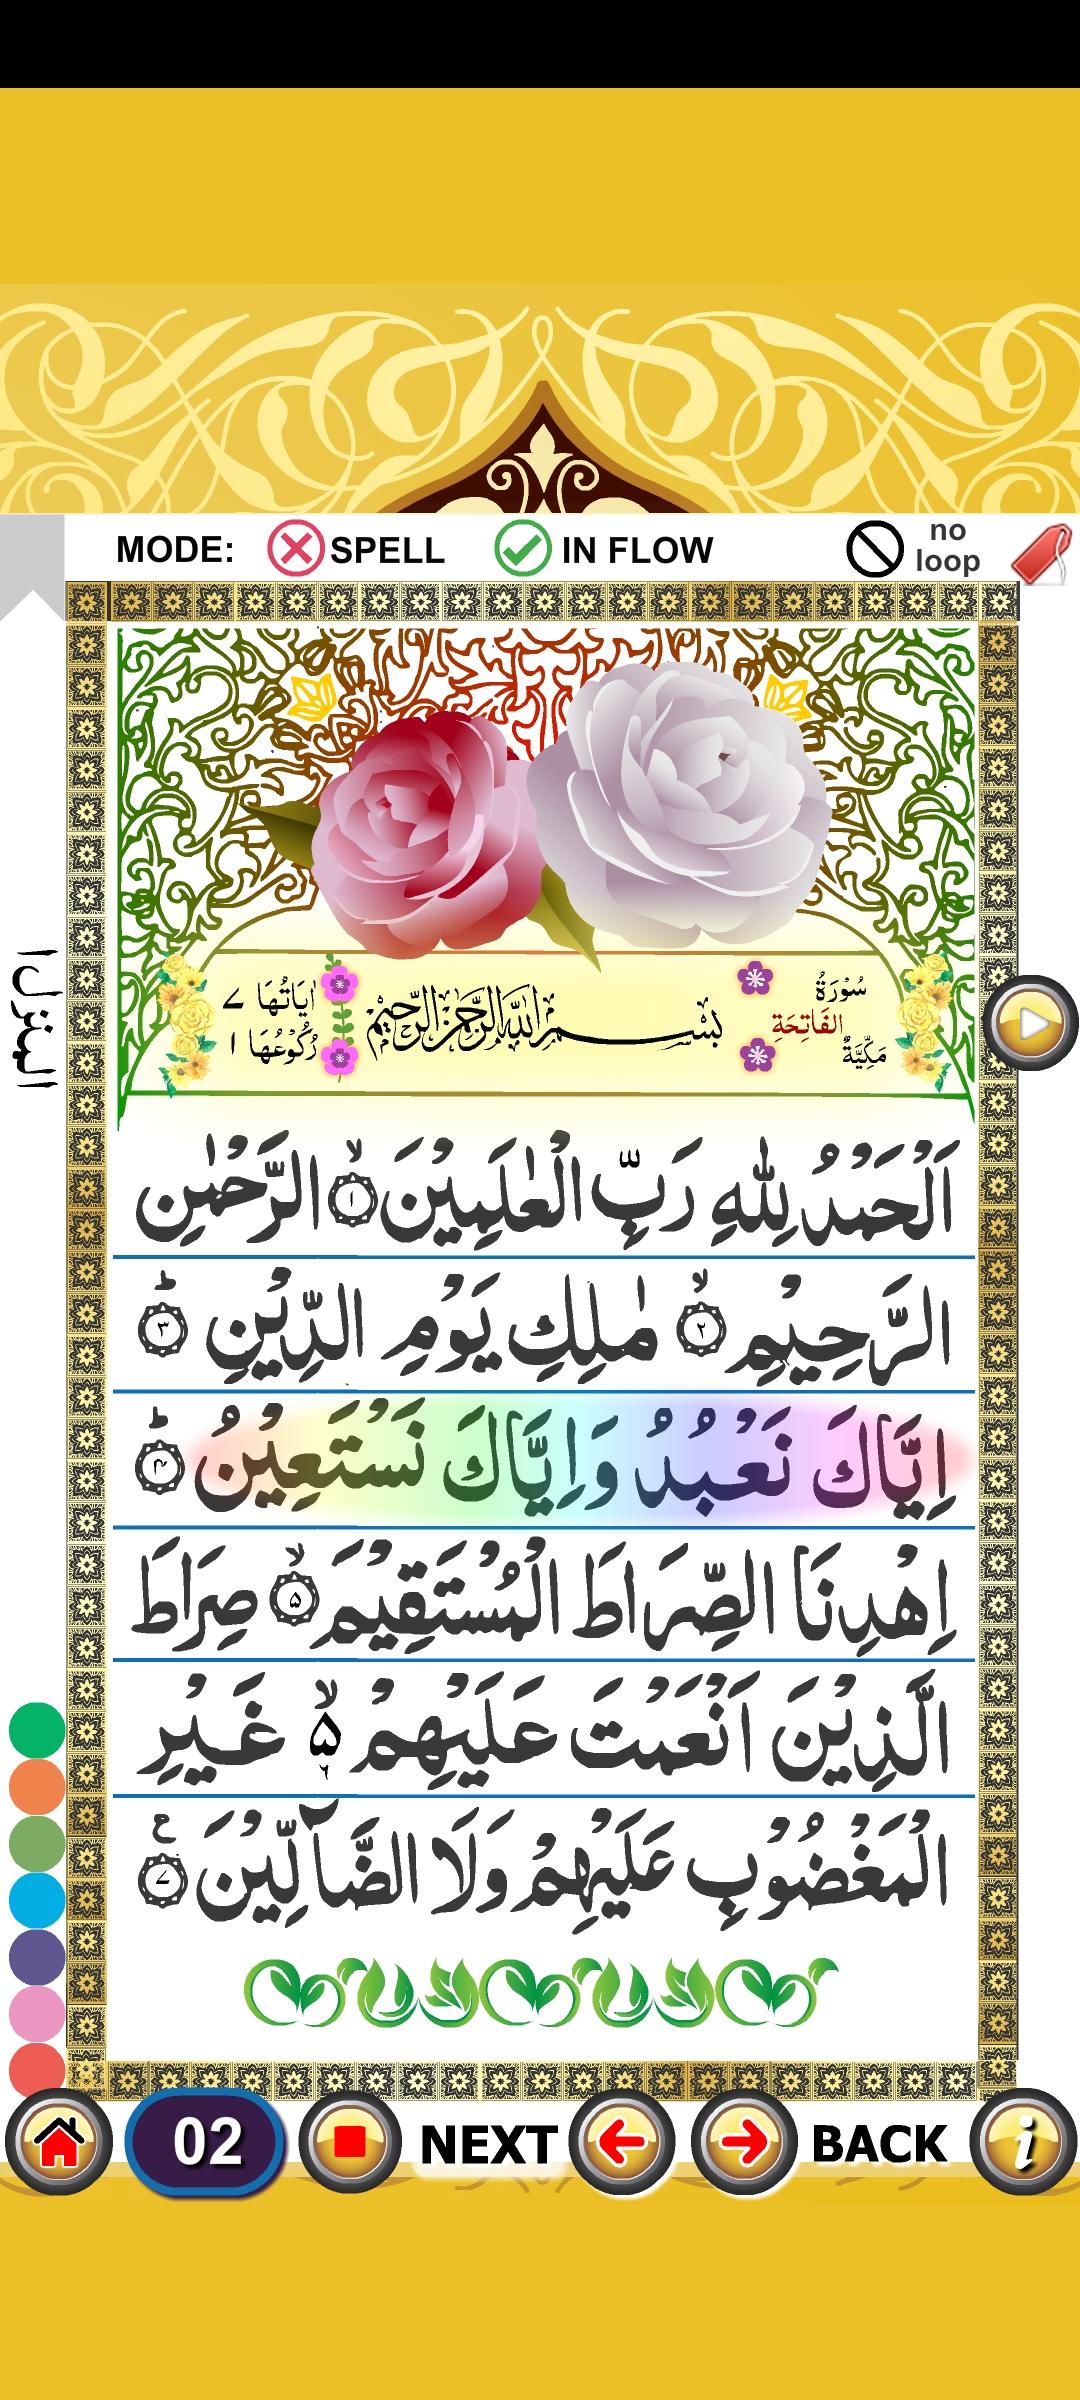 MODE: SPELL IN FLOW no loop
سُوْرَةُ الفَاتِحَةِ مَكِّيَّةٌ
بِسْمِ اللهِ الرَّحْمٰنِ الرَّحِيْمِ
اٰيَاتُهَا ۷
رُكُوْعُهَا ۱
المنزل ۱
اَلْحَمْدُ لِلّٰهِ رَبِّ الْعٰلَمِيْنَ ۙ‏﴿۱﴾ الرَّحْمٰنِ
الرَّحِيْمِ ۙ‏﴿۲﴾ مٰلِكِ يَوْمِ الدِّيْنِ ؕ‏﴿۳﴾
اِيَّاكَ نَعْبُدُ وَاِيَّاكَ نَسْتَعِيْنُ ؕ‏﴿۴﴾
اِهْدِنَا الصِّرَاطَ الْمُسْتَقِيْمَ ۙ‏﴿۵﴾ صِرَاطَ
الَّذِيْنَ اَنْعَمْتَ عَلَيْهِمْ ۙ۵ ۶ غَيْرِ
الْمَغْضُوْبِ عَلَيْهِمْ وَلَا الضَّآلِّيْنَ ﴿۷﴾ ع
02 NEXT BACK i